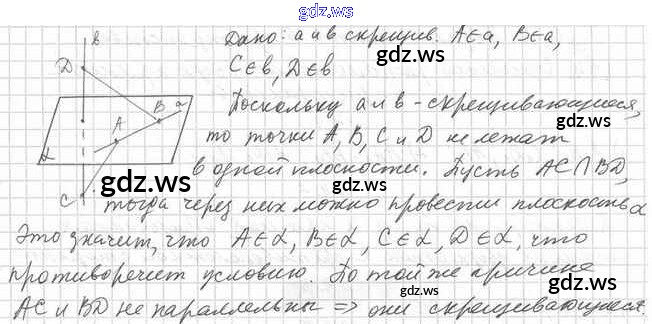 gdz.ws
в
Дано: a и в скрещив. A∈a, B∈a,
D
gdz.ws
C∈в, D∈в
Поскольку a и в - скрещивающиеся,
B a
A
то точки A, B, C и D не лежат
gdz.ws
α
в одной плоскости. Пусть AC∩BD,
C
gdz.ws
тогда через них можно провести плоскость α
Это значит, что A∈α, B∈α, C∈α, D∈α, что
gdz.ws
противоречит условию. По той же причине
gdz.ws
AC и BD не параллельны ⇒ они скрещивающиеся.